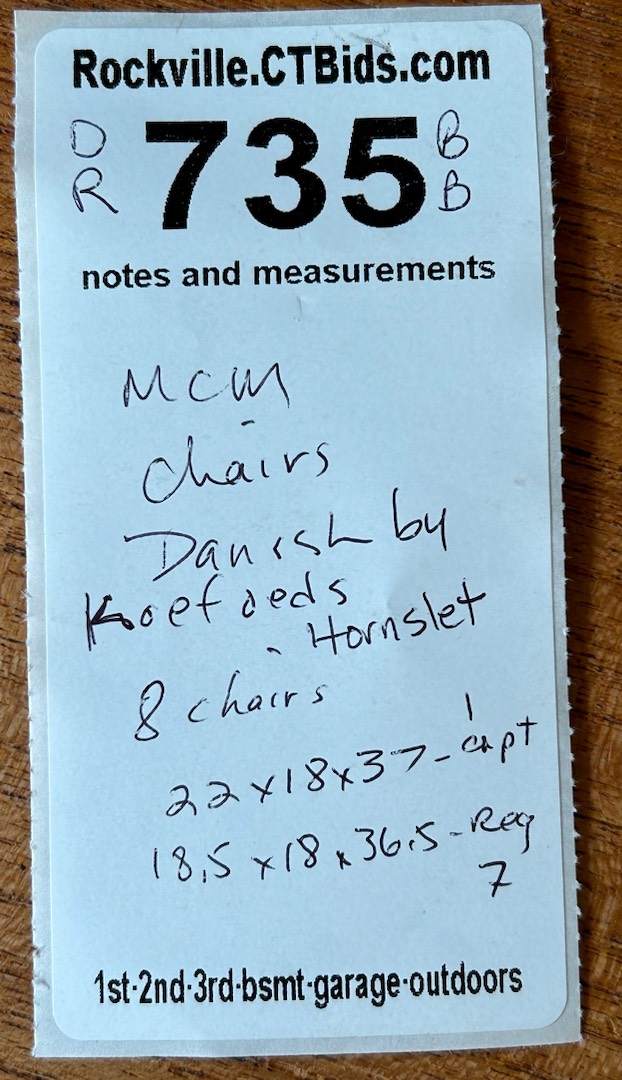 Rockville.CTBids.com
D 735 B
R B
notes and measurements
MCM
chairs
Danish by
Koefoeds
- Hornslet
8 chairs
1
22x18x37 - capt
18.5 x18 x 36.5 - Reg
7
1st·2nd·3rd·bsmt·garage·outdoors